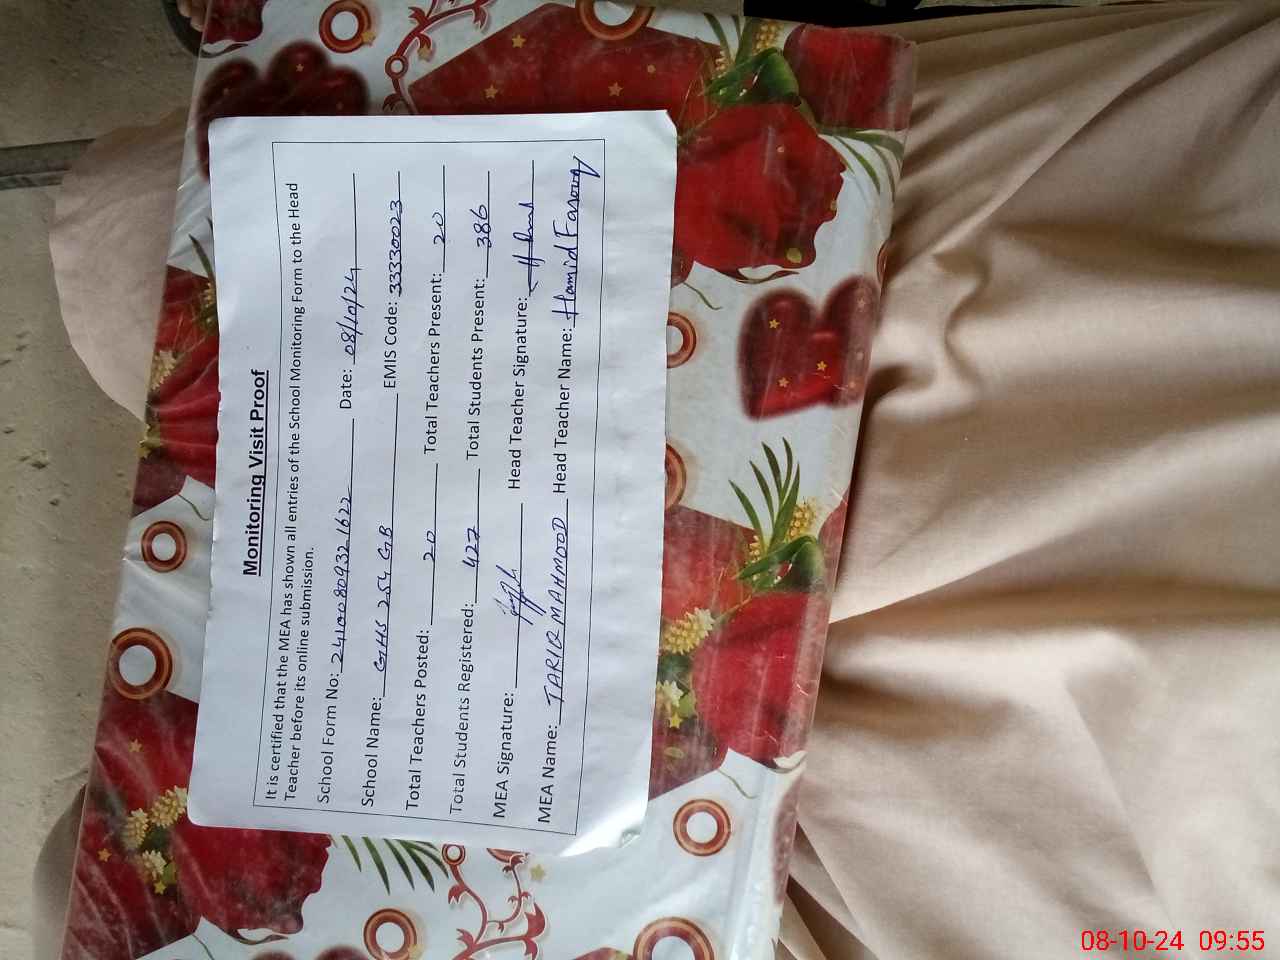 Monitoring Visit Proof
It is certified that the MEA has shown all entries of the School Monitoring Form to the Head
Teacher before its online submission.
School Form No: 24100809321622 Date: 08/10/24
School Name: GHS 254 GB EMIS Code: 33330023
Total Teachers Posted: 20 Total Teachers Present: 20
Total Students Registered: 427 Total Students Present: 386
MEA Signature: Head Teacher Signature:
MEA Name: TARIQ MAHMOOD Head Teacher Name: Hamid Farooq
08-10-24 09:55